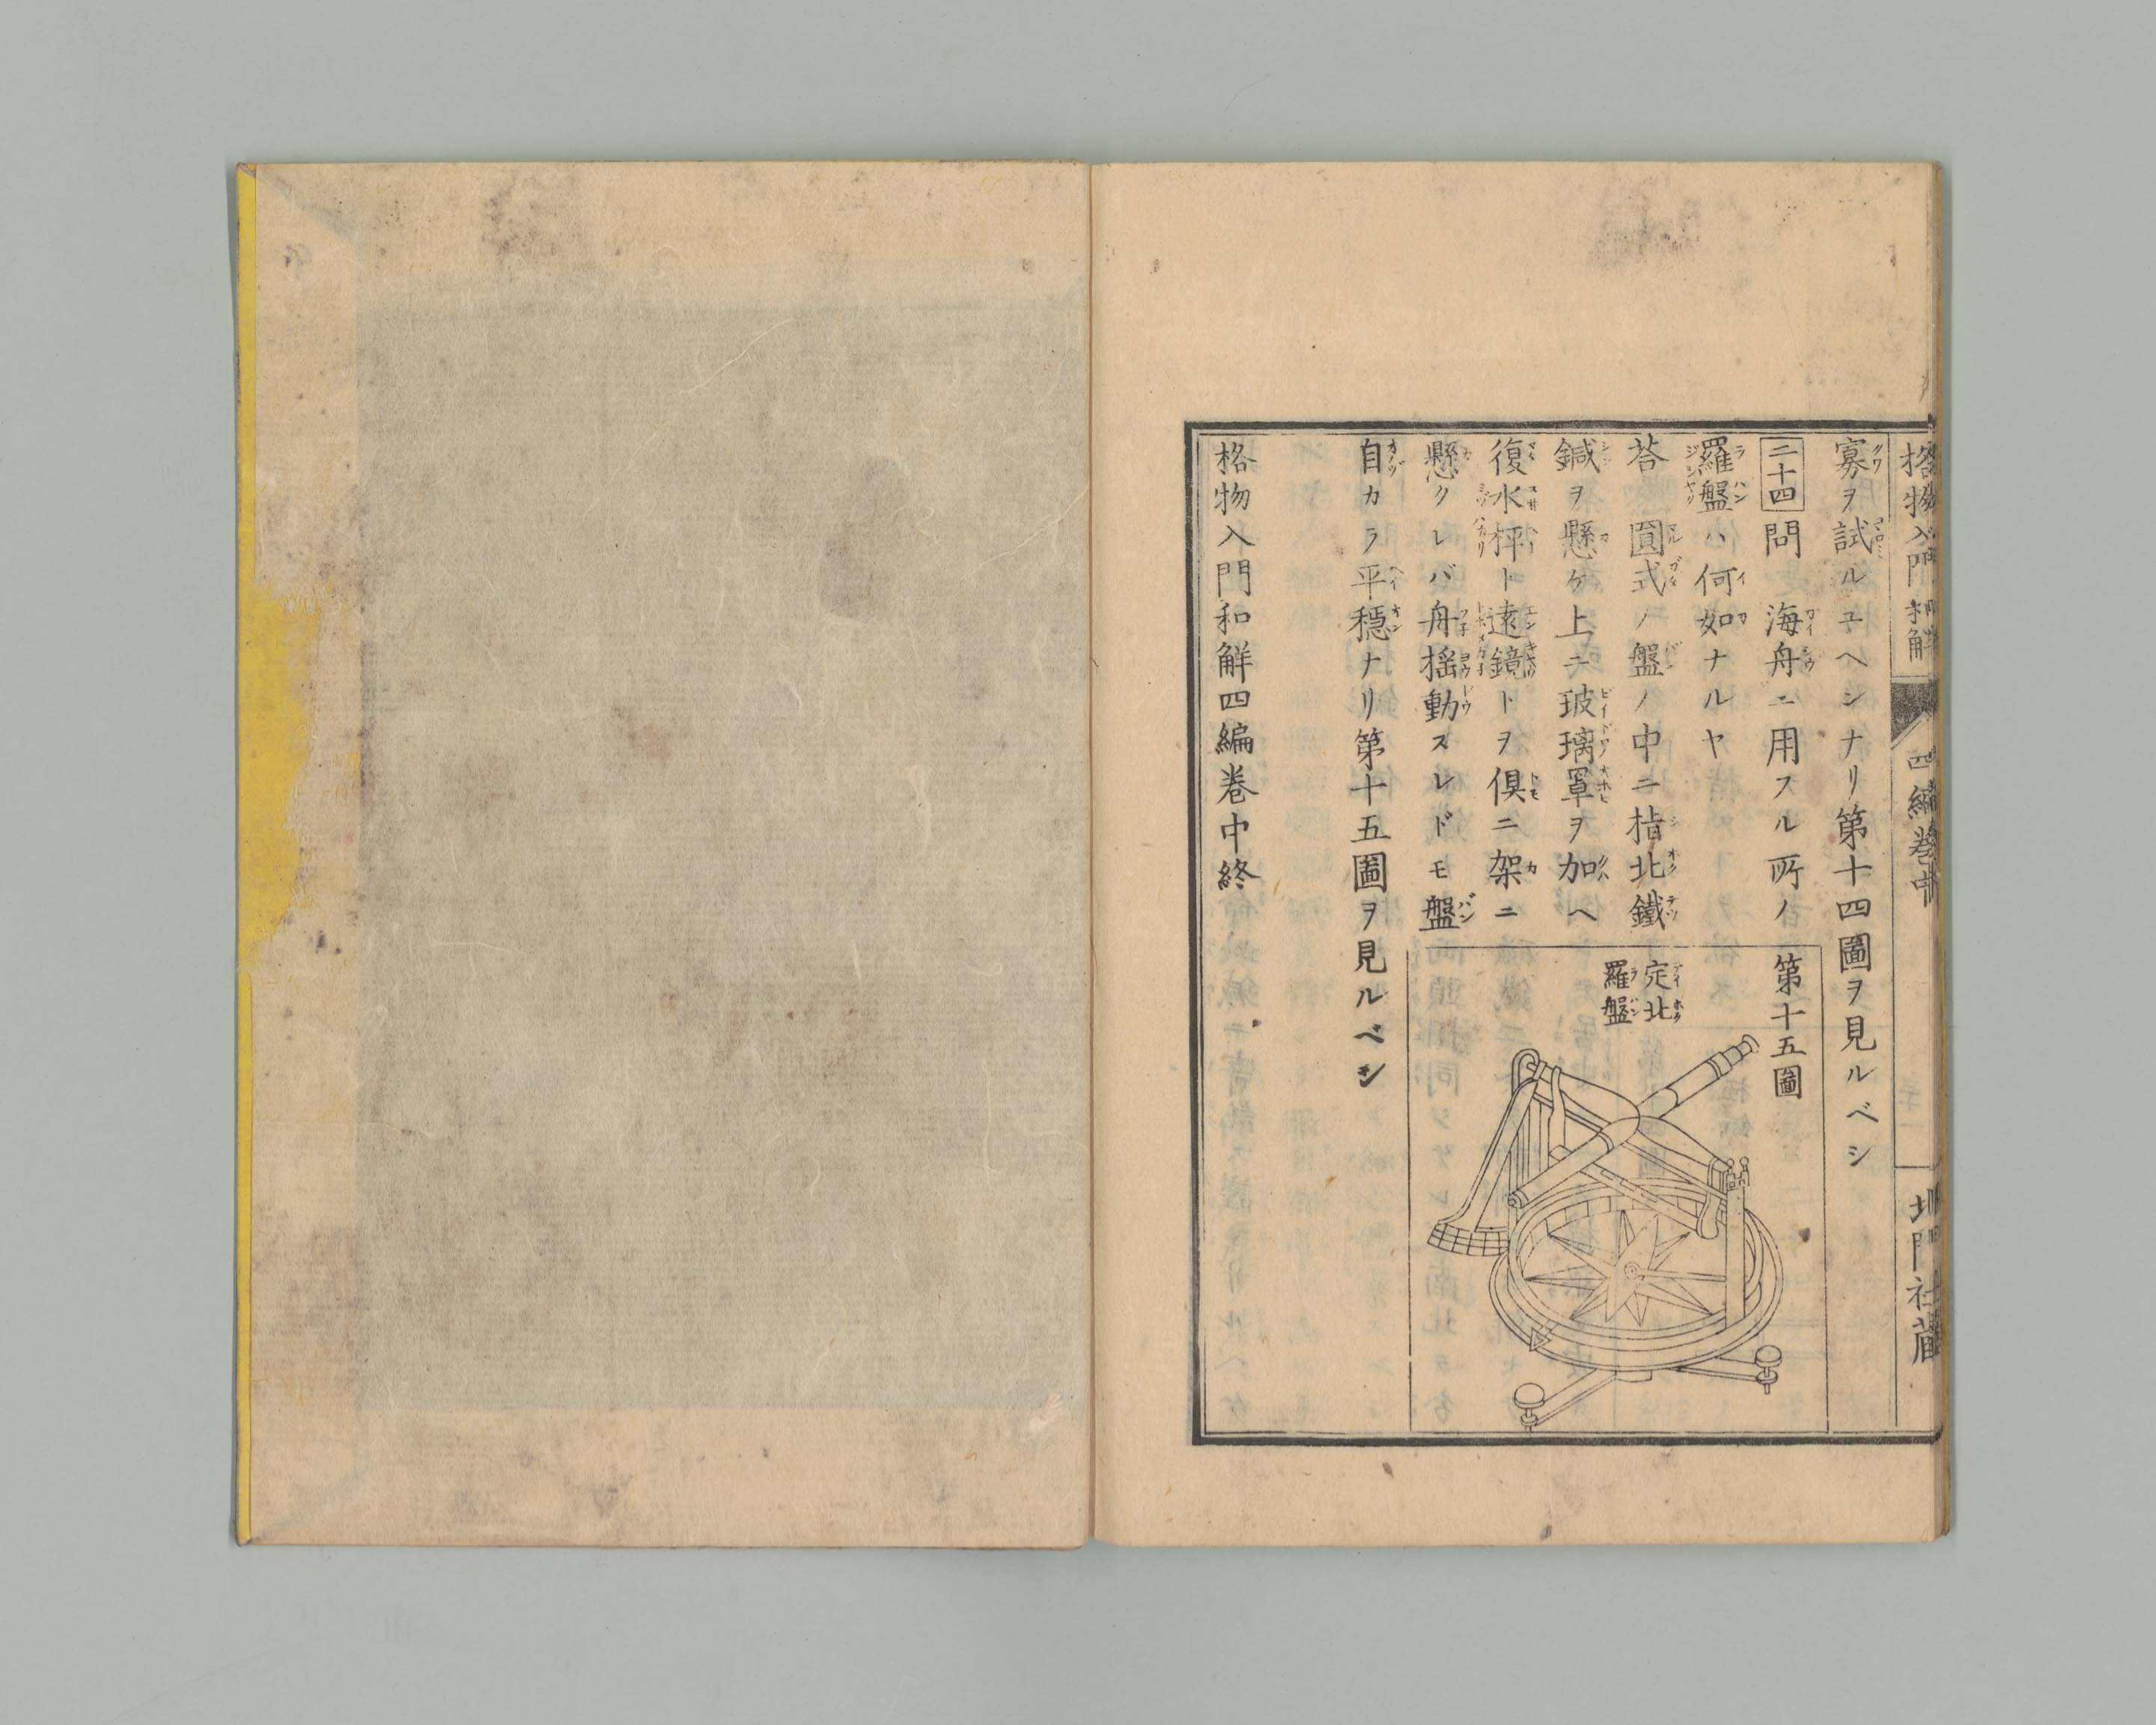 格物入門和解 四編卷中 北門社蔵
寡ヲ試ルユヘシナリ第十四圖ヲ見ルベシ
二十四 問 海舟ニ用スル所ノ
羅盤ハ何如ナルヤ
荅 圓式ノ盤ノ中ニ指北鐵
鍼ヲ懸ケ上ニ玻璃罩ヲ加ヘ
復水枰ト遠鏡トヲ俱ニ架ニ
懸クレバ舟搖動スレドモ盤
自カラ平穩ナリ第十五圖ヲ見ルベシ
第十五圖
定北
羅盤
格物入門和解四編卷中終